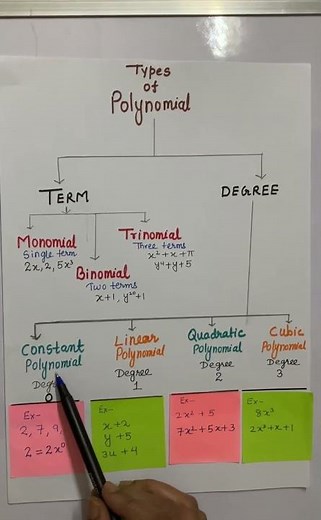 Types
of
Polynomial
TERM
DEGREE
Monomial
Single term
2x, 2, 5x³
Binomial
Two terms
x+1, y²⁰+1
Trinomial
Three terms
x²+x+π
y⁴+y+5
Constant
Polynomial
0
Linear
Polynomial
Degree
1
Quadratic
Polynomial
Degree
2
Cubic
Polynomial
Degree
3
Ex-
2, 7, 9,
2=2x⁰
Ex-
y+5
3u+4
Ex-
2x²+5
7x²+5x+3
Ex-
8x³